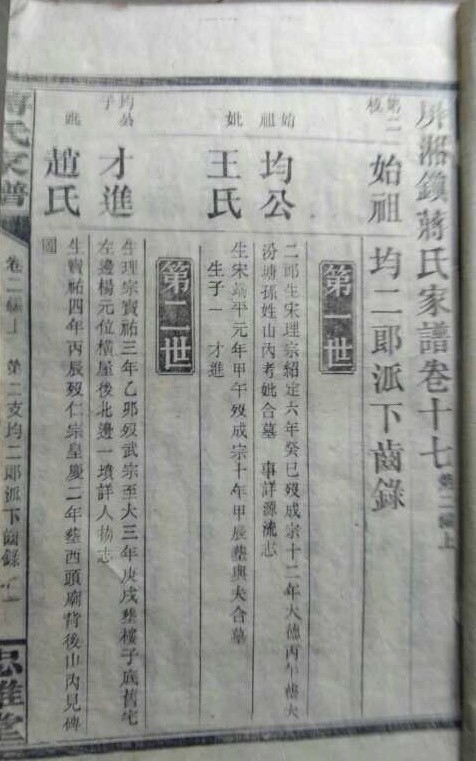 屏湘鎮蔣氏家譜卷十七 卷二編上
第二枝 始祖 均二郎派下齒錄
第一世
始祖 均公 二郎生宋理宗紹定六年癸巳歿成宗十二年大德丙午
汾塘孫姓山內考妣合墓 事詳源流志
妣 王氏 生宋端平元年甲午歿成宗十年甲辰塟與夫合墓
生子一 才進
第二世
均公子 才進 生理宗寶祐三年乙卯歿武宗至大三年庚戌塟樓子底舊宅
左邊楊元位橫屋後北邊一墳詳人物志
妣 趙氏 生寶祐四年丙辰歿仁宗皇慶二年塟西頭廟背後山內見碑
圖
蔣氏家譜 卷二編上 第二支均二郎派下齒錄 忠雅堂